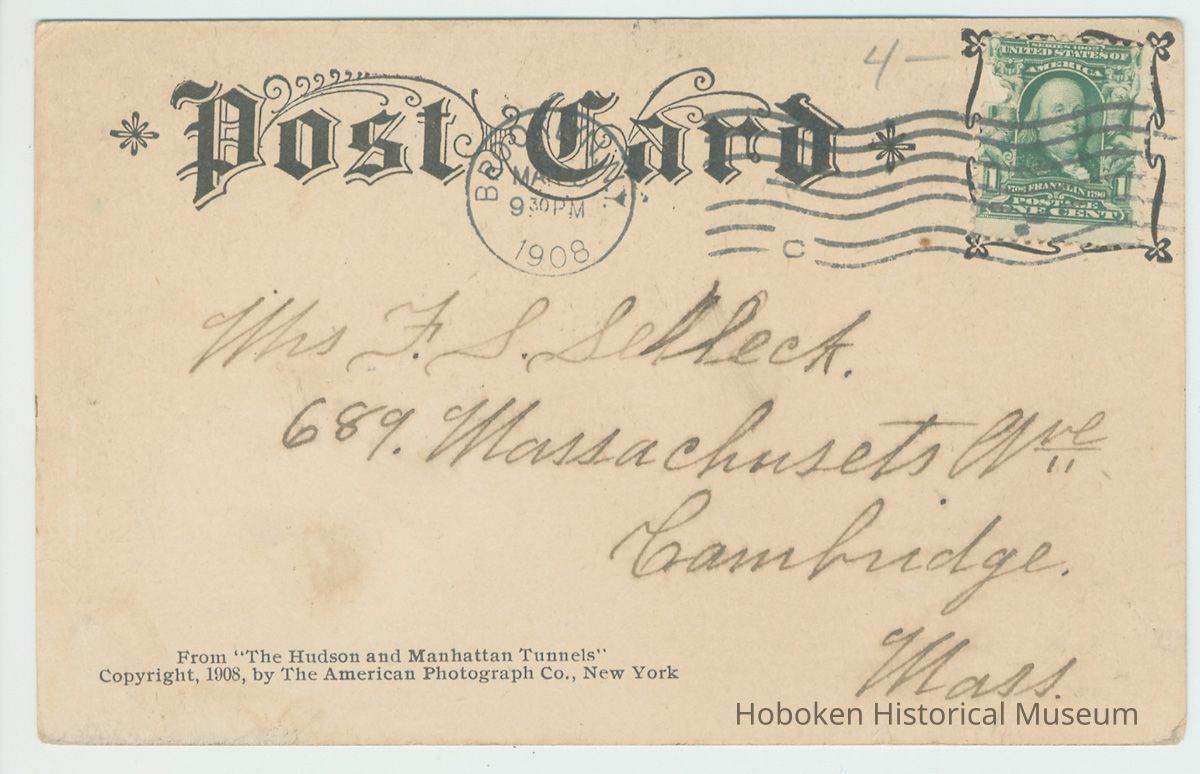 4 –
Post Card
SERIES 1902
UNITED STATES OF
AMERICA
1706 FRANKLIN 1790
1 1
POSTAGE
ONE CENT
9 30 PM
1908
C
Mrs F. S. Selleck.
689. Massachusets Ave
Cambridge.
Mass.
From "The Hudson and Manhattan Tunnels"
Copyright, 1908, by The American Photograph Co., New York
Hoboken Historical Museum